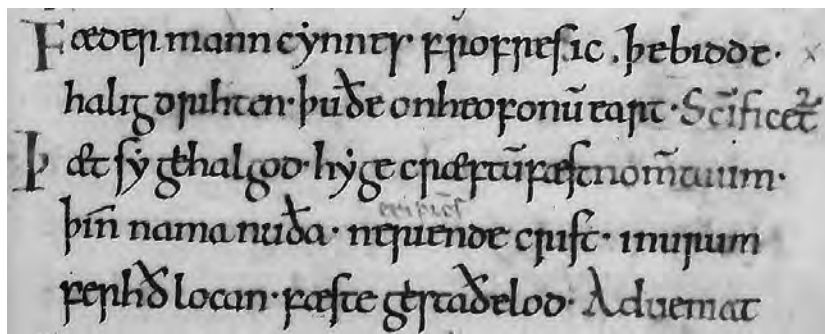 Fæder mann cẏnnes frofres.ic . þe bidde·
halig drihten· þu ðe on heofonū eart· Sc̄ificet᷑
Þæt sẏ gehalgod· hẏge cræftū fæst nom̄ tuum·
þin nama nu ða· neriende crist· in urum
ferhð locan· fæste gestaðelod· Adueniat